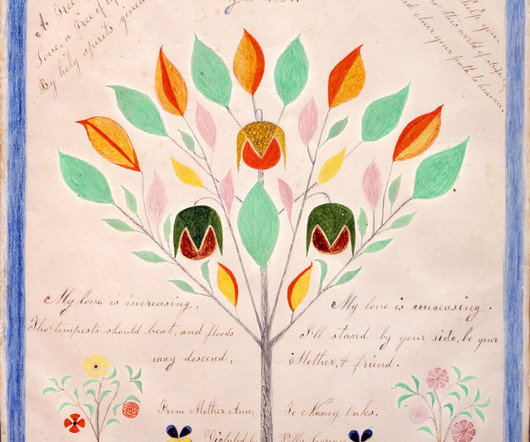 A Tree
Love, a Tree of
By holy spirits
help you,
in this world of
And clear your path to heaven.
My love is increasing,
Tho tempests should beat, and floods
may descend,
My love is unceasing.
I'll stand by your side, be your
Mother, & friend.
From Mother Ann, To Nancy Oakes.
Dictated by Polly